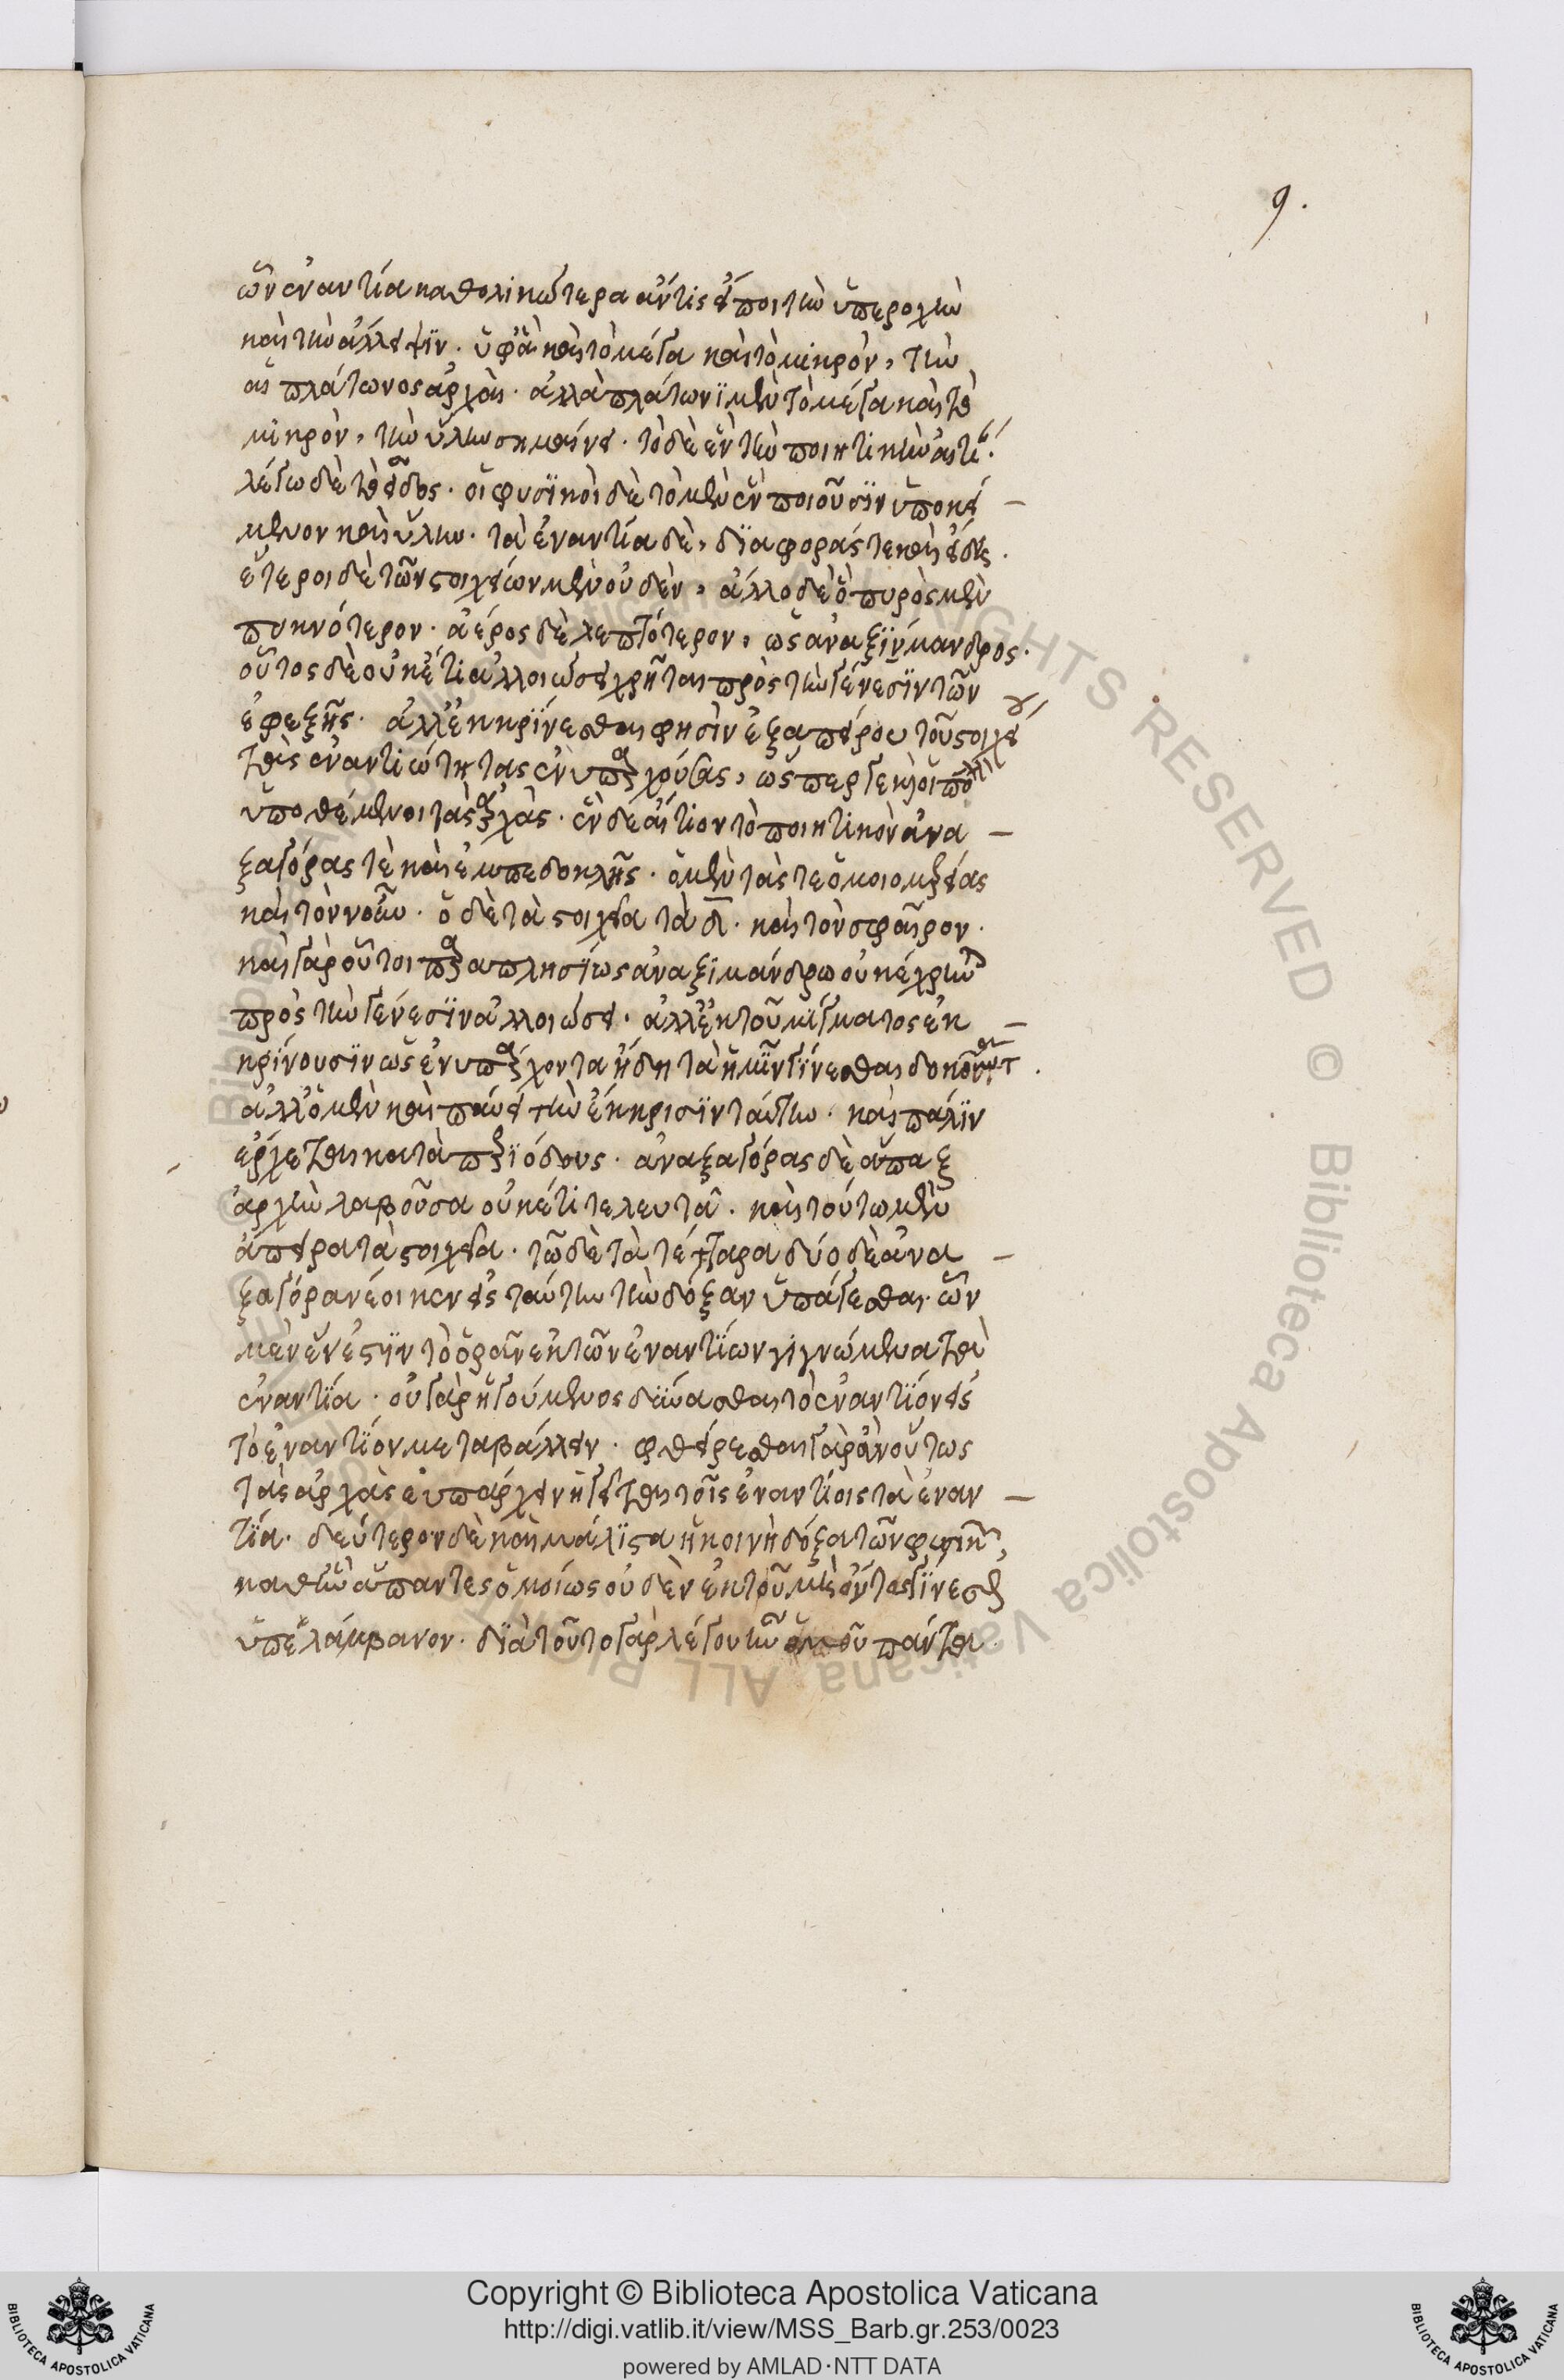 9.
ὧν ἐναντία καθολικώτερα ἄν τις εἴποι τὴν ὑπεροχὴν
καὶ τὴν ἔλλειψιν. ὑφ' ἃ καὶ τὸ μέγα καὶ τὸ μικρὸν, τὴν
αἱ πλάτωνος ἀρχαὶ. ἀλλὰ πλάτωνι μὲν τὸ μέγα καὶ τὸ
μικρὸν, τὴν ὕλην σημαίνει. τὸ δὲ ἓν τὴν ποιητικὴν αἰτί.
λέγω δὲ τὸ εἶδος. οἱ φυσικοὶ δὲ τὸ μὲν ἓν ποιοῦσιν ὑποκεί-
μενον καὶ ὕλην. τὰ ἐναντία δὲ, διαφοράς τε καὶ εἴδη.
ἕτεροι δὲ τῶν στοιχείων μὲν οὐδὲν, ἄλλο δὲ ὃ πυρὸς μὲν
πυκνότερον. ἀέρος δὲ λεπτότερον, ὡς ἀναξίμανδρος.
οὗτος δὲ οὐκέτι ἀλλοιώσει χρῆται πρὸς τὴν γένεσιν τῶν
ἐφεξῆς. ἀλλ' ἐκκρίνεσθαι φησὶν ἐξ ἀπείρου τοῦ στοιχεί
τὰς ἐναντιώτητας ἐνυπαρχούσας, ὥσπερ καὶ οἱ
ὑποθέμενοι τὰς ἀρχὰς. ἓν δὲ αἴτιον τὸ ποιητικὸν ἀνα-
ξαγόρας τὲ καὶ ἐμπεδοκλῆς. ὁ μὲν τάς τε ὁμοιομερείας
καὶ τὸν νοῦν. ὁ δὲ τὰ στοιχεῖα τὰ δ̅. καὶ τὸν σφαῖρον.
καὶ γὰρ οὗτοι παραπλησίως ἀναξιμάνδρω οὐκ ἐχρῶν
πρὸς τὴν γένεσιν ἀλλοιώσει. ἀλλ' ἐκ τοῦ μίγματος ἐκ-
κρίνουσιν ὡς ἐνυπάρχοντα ἤδη τὰ ἡμῖν γίνεσθαι δοκοῦντ.
ἀλλ' ὁ μὲν καὶ παύει τὴν ἔκκρισιν ταύτην. καὶ πάλιν
ἔρχεται κατὰ περιόδους. ἀναξαγόρας δὲ ἅπαξ
ἀρχὴν λαβοῦσα οὐκέτι τελευτᾶ. καὶ τούτω μὲν
ἄπειρα τὰ στοιχεῖα. τῶ δὲ τὰ τέτταρα δύο δὲ ἀνα-
ξαγόραν ἔοικεν εἰς ταύτην τὴν δόξαν ὑπάγεσθαι ὧν
μὲν ἕν ἐστιν τὸ ὁρᾶν ἐκ τῶν ἐναντίων γιγνώμενα τὰ
ἐναντία. οὐ γὰρ ἡγούμενος δύνασθαι τὸ ἐναντίον εἰς
τὸ ἐναντίον μεταβάλλειν. φθείρεσθαι γὰρ ἂν οὕτως
τὰς ἀρχὰς ἐνυπάρχειν ἡγεῖται τοῖς ἐναντίοις τὰ ἐναν-
τία. δεύτερον δὲ καὶ μάλιστα ἡ κοινὴ δόξα τῶν φυσικῶν,
καθ' ἣν ἅπαντες ὁμοίως οὐδὲν ἐκ τοῦ μὴ ὄντος γίνεσθ
ὑπελάμβανον. διὰ τοῦτο γὰρ λέγουσιν ἦν ὁμοῦ πάντα
Copyright © Biblioteca Apostolica Vaticana
http://digi.vatlib.it/view/MSS_Barb.gr.253/0023
powered by AMLAD·NTT DATA